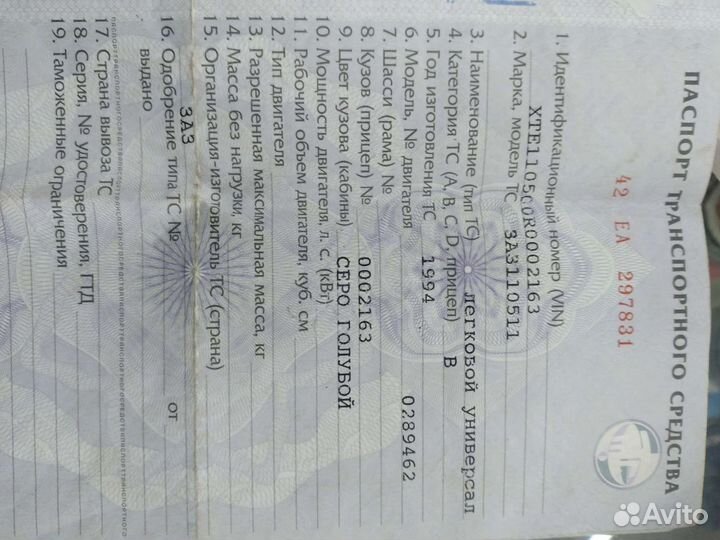 ПАСПОРТ ТРАНСПОРТНОГО СРЕДСТВА
42 ЕА 297831
1. Идентификационный номер (VIN)
XTE110500R0002163
2. Марка, модель ТС ЗАЗ110511
3. Наименование (тип ТС) легковой универсал
4. Категория ТС (А, В, С, D, прицеп) В
5. Год изготовления ТС 1994
6. Модель, № двигателя 0289462
7. Шасси (рама) №
8. Кузов (прицеп) № 0002163
9. Цвет кузова (кабины) СЕРО ГОЛУБОЙ
10. Мощность двигателя, л. с. (кВт)
11. Рабочий объем двигателя, куб. см
12. Тип двигателя
13. Разрешенная максимальная масса, кг
14. Масса без нагрузки, кг
15. Организация-изготовитель ТС (страна)
ЗАЗ
16. Одобрение типа ТС № от
выдано
17. Страна вывоза ТС
18. Серия, № удостоверения, ГТД
19. Таможенные ограничения
Avito